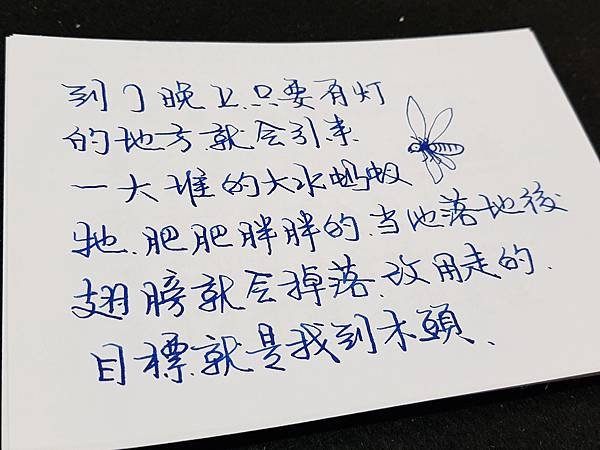 到了晚上只要有灯
的地方就会引来
一大堆的大水蚂蚁
牠.肥肥胖胖的.当牠落地後
翅膀就会掉落.改用走的.
目標就是找到木頭、